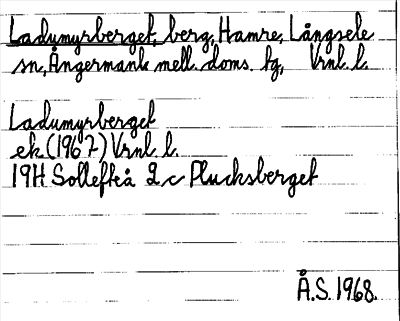 Ladumyrberget, berg, Hamre, Långsele
sn, Ångermanl. mell. doms. tg, Vrnl. l.
Ladumyrberget
ek (1967) Vrnl. l.
19H Sollefteå 2 c Plucksberget
Å.S. 1968.